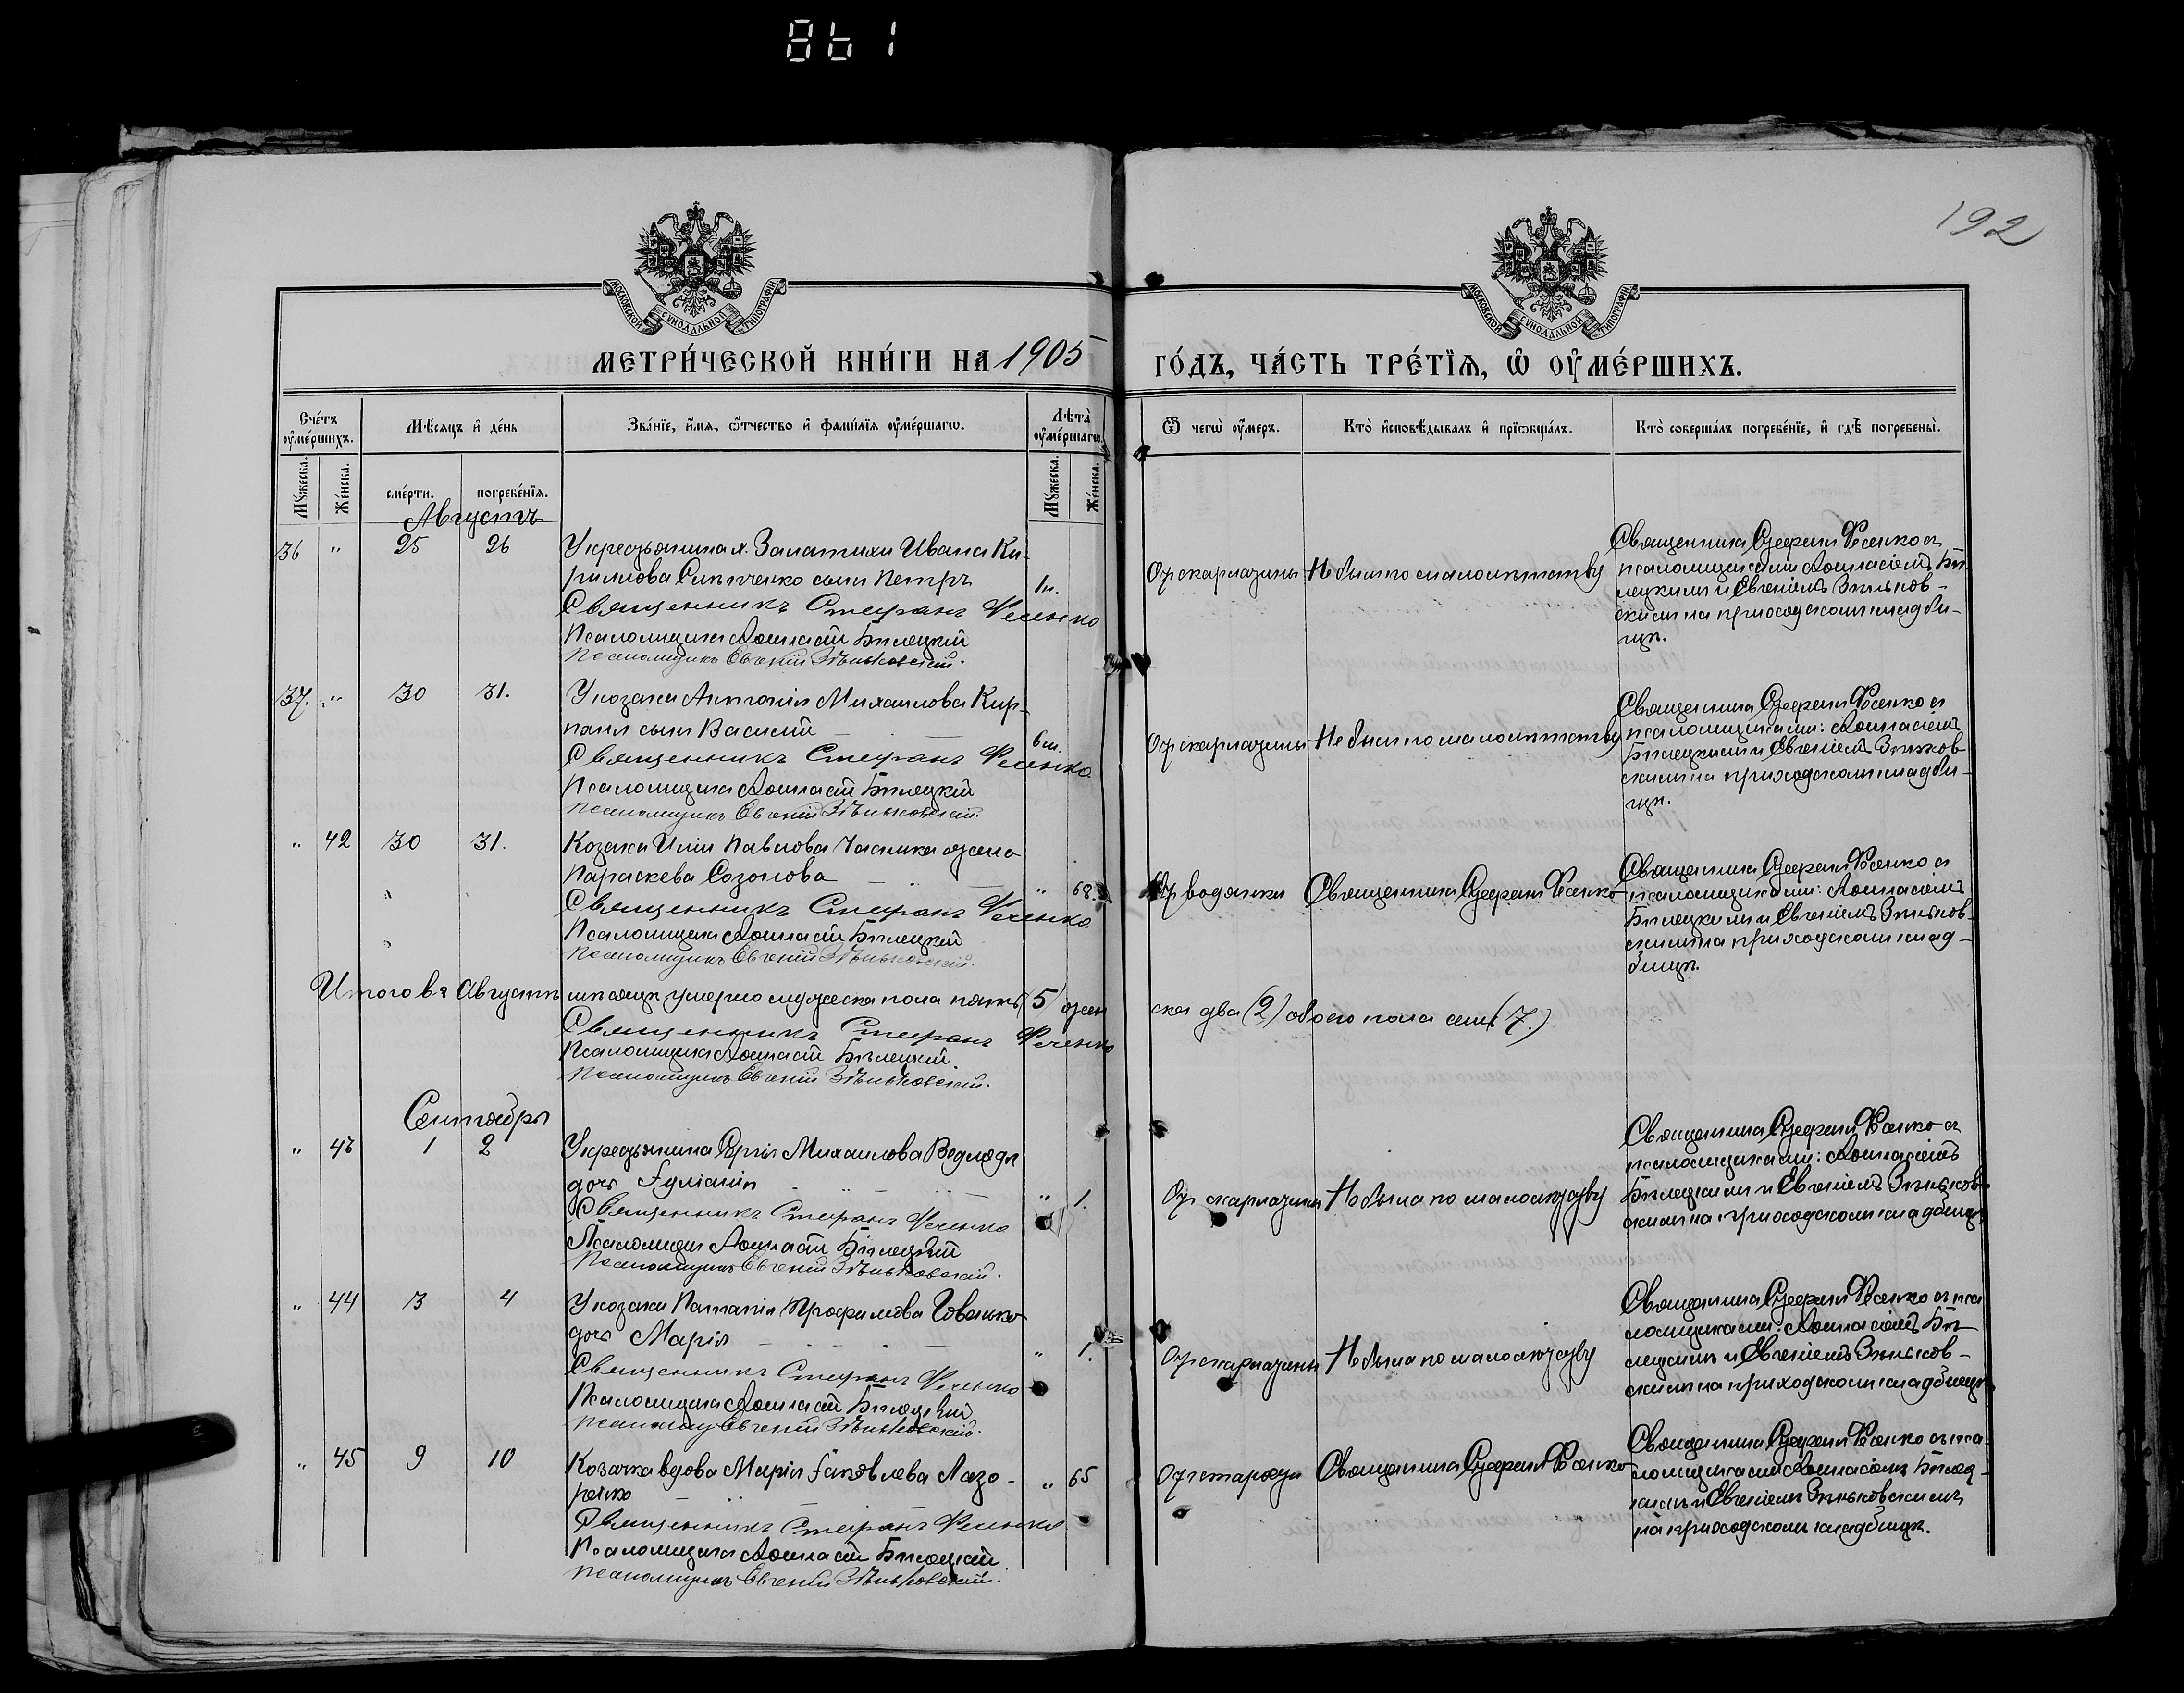 861
192
МОСКОВСКОЙ СѴНОДАЛЬНОЙ ТИПОГРАФІИ
МОСКОВСКОЙ СѴНОДАЛЬНОЙ ТИПОГРАФІИ
МЕТРИ́ЧЕСКОЙ КНИ́ГИ НА 1905 ГО́ДЪ, ЧА́СТЬ ТРЕ́ТЇѦ, Ѡ҆ ОУ҆МЕ́РШИХЪ.
Сче́тъ оу҆ме́ршихъ.
Мѣ́сяцъ и҆ де́нь
Зва́нїе, и҆́мѧ, ѻ҆́тчество и҆ фами́лїѧ оу҆ме́ршагѡ.
Лѣта̀ оу҆ме́ршагѡ.
Ѿ чегѡ̀ оу҆́меръ.
Кто̀ и҆сповѣ́дывалъ и҆ прїѡбща́лъ.
Кто̀ соверша́лъ погребе́нїе, и҆ гдѣ̀ погребены̀.
Мꙋ́жеска.
Же́нска.
сме́рти.
погребе́нїѧ.
Мꙋ́жеска.
Же́нска.
Августъ
36 " 25 26 У крестьянина х. Залатихи Ивана Ки-
риллова сынъ Петръ
Священникъ Стефанъ Фесенко
Псаломщикъ Билецкій
Псаломщикъ Евгеній Зѣньковскій.
Отъ скарлатины
Не былъ по малолѣтству
Священникъ Стефанъ Фесенко съ
псаломщиками Би-
лецкимъ и Евгеніемъ Зѣньков-
скимъ на приходскомъ кладби-
щѣ.
37. " 30 31. У козака Антонія Михаилова Кир-
сынъ Василій
6 м.
Священникъ Стефанъ Фесенко
Псаломщикъ Билецкій
Псаломщикъ Евгеній Зѣньковскій.
Отъ скарлатины
Не былъ по малолѣтству
Священникъ Стефанъ Фесенко съ
псаломщиками:
Билецкимъ и Евгеніемъ Зѣньков-
скимъ на приходскомъ кладби-
щѣ.
" 42 30 31. Козака Иліи Павлова жена
Параскева Созонова
" 68.
Священникъ Стефанъ Фесенко
Псаломщикъ Билецкій
Псаломщикъ Евгеній Зѣньковскій.
Отъ водянки
Священникъ Стефанъ Фесенко
Священникъ Стефанъ Фесенко съ
псаломщиками:
Билецкимъ и Евгеніемъ Зѣньков-
скимъ на приходскомъ клад-
бищѣ.
Итого въ Августѣ мѣсяцѣ умерло мужеска пола пять (5) жен
ска два (2) обоего пола семь (7.)
Священникъ Стефанъ Фесенко
Псаломщикъ Билецкій.
Псаломщикъ Евгеній Зѣньковскій.
Сентябрь
" 43 1 2 У крестьянина Сергія Михаилова
дочь Іуліанія
" 1.
Священникъ Стефанъ Фесенко
Псаломщикъ Билецкій
Псаломщикъ Евгеній Зѣньковскій.
Отъ скарлатины
Не была по малолѣтству
Священникъ Стефанъ Фесенко съ
псаломщиками:
Билецкимъ и Евгеніемъ Зѣньков-
скимъ на приходскомъ кладбищѣ
" 44 3 4 У козака
дочь Марія
" 1.
Священникъ Стефанъ Фесенко
Псаломщикъ Билецкій
Псаломщ Евгеній Зѣньковскій.
Отъ скарлатины
Не была по малолѣтству
Священникъ Стефанъ Фесенко съ пса
ломщиками: Би-
лецкимъ и Евгеніемъ Зѣньков-
скимъ на приходскомъ кладбищѣ
" 45 9 10 Козачка вдова Марія Іаковлева Лазо-
ренко
" 65
Священникъ Стефанъ Фесенко
Псаломщикъ Билецкій
Псаломщикъ Евгеній Зѣньковскій.
Отъ старости
Священникъ Стефанъ Фесенко
Священникъ Стефанъ Фесенко съ пса-
ломщиками Билец-
кимъ и Евгеніемъ Зѣньковскимъ
на приходскомъ кладбищѣ.